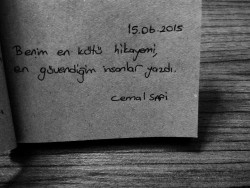 15.06.2015
Benim en kötü hikayemi,
en güvendiğim insanlar yazdı.
Cemal SAFİ